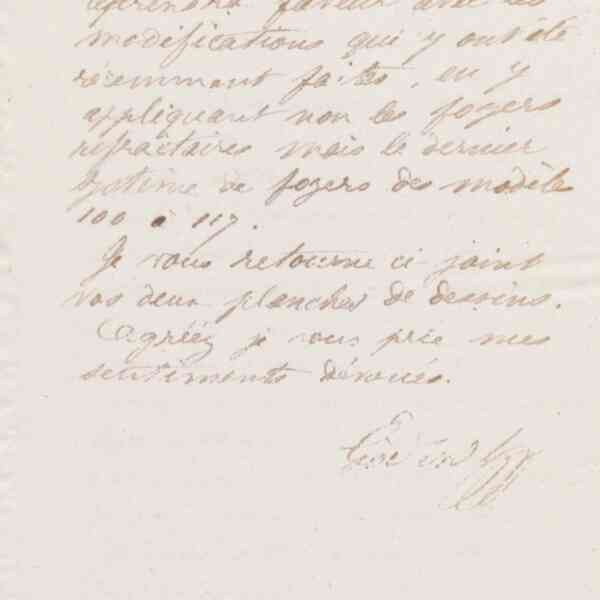 reprendra faveur avec les
modifications qui y ont été
récemment faites, en y
appliquant non les foyers
réfractaires mais le dernier
système de foyers des modèles
100 à 117.
Je vous retourne ci joint
vos deux planches de dessins.
Agréez je vous prie mes
sentiments dévoués.